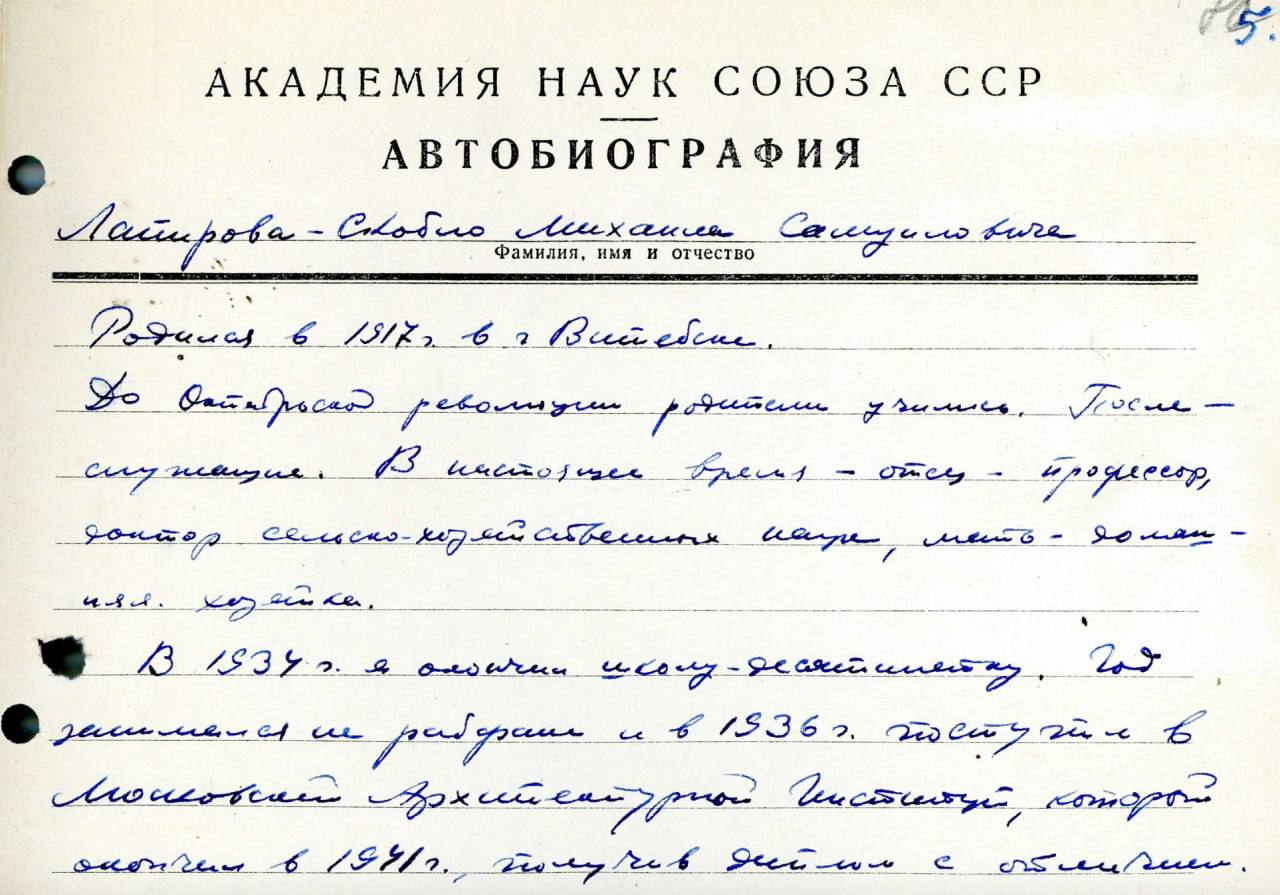 5.
АКАДЕМИЯ НАУК СОЮЗА ССР
АВТОБИОГРАФИЯ
Лапирова-Скобло Михаила Самуиловича
Фамилия, имя и отчество
Родился в 1917 г. в г Витебске.
До Октябрьской революции родители учились. После –
служащие. В настоящее время – отец – профессор,
доктор сельско-хозяйственных наук, мать – домаш-
няя. хозяйка.
В 1934 г. я окончил школу-десятилетку. Год
занимался на рабфаке и в 1936 г. поступил в
Московский Архитектурный Институт, который
окончил в 1941 г., получив диплом с отличием.